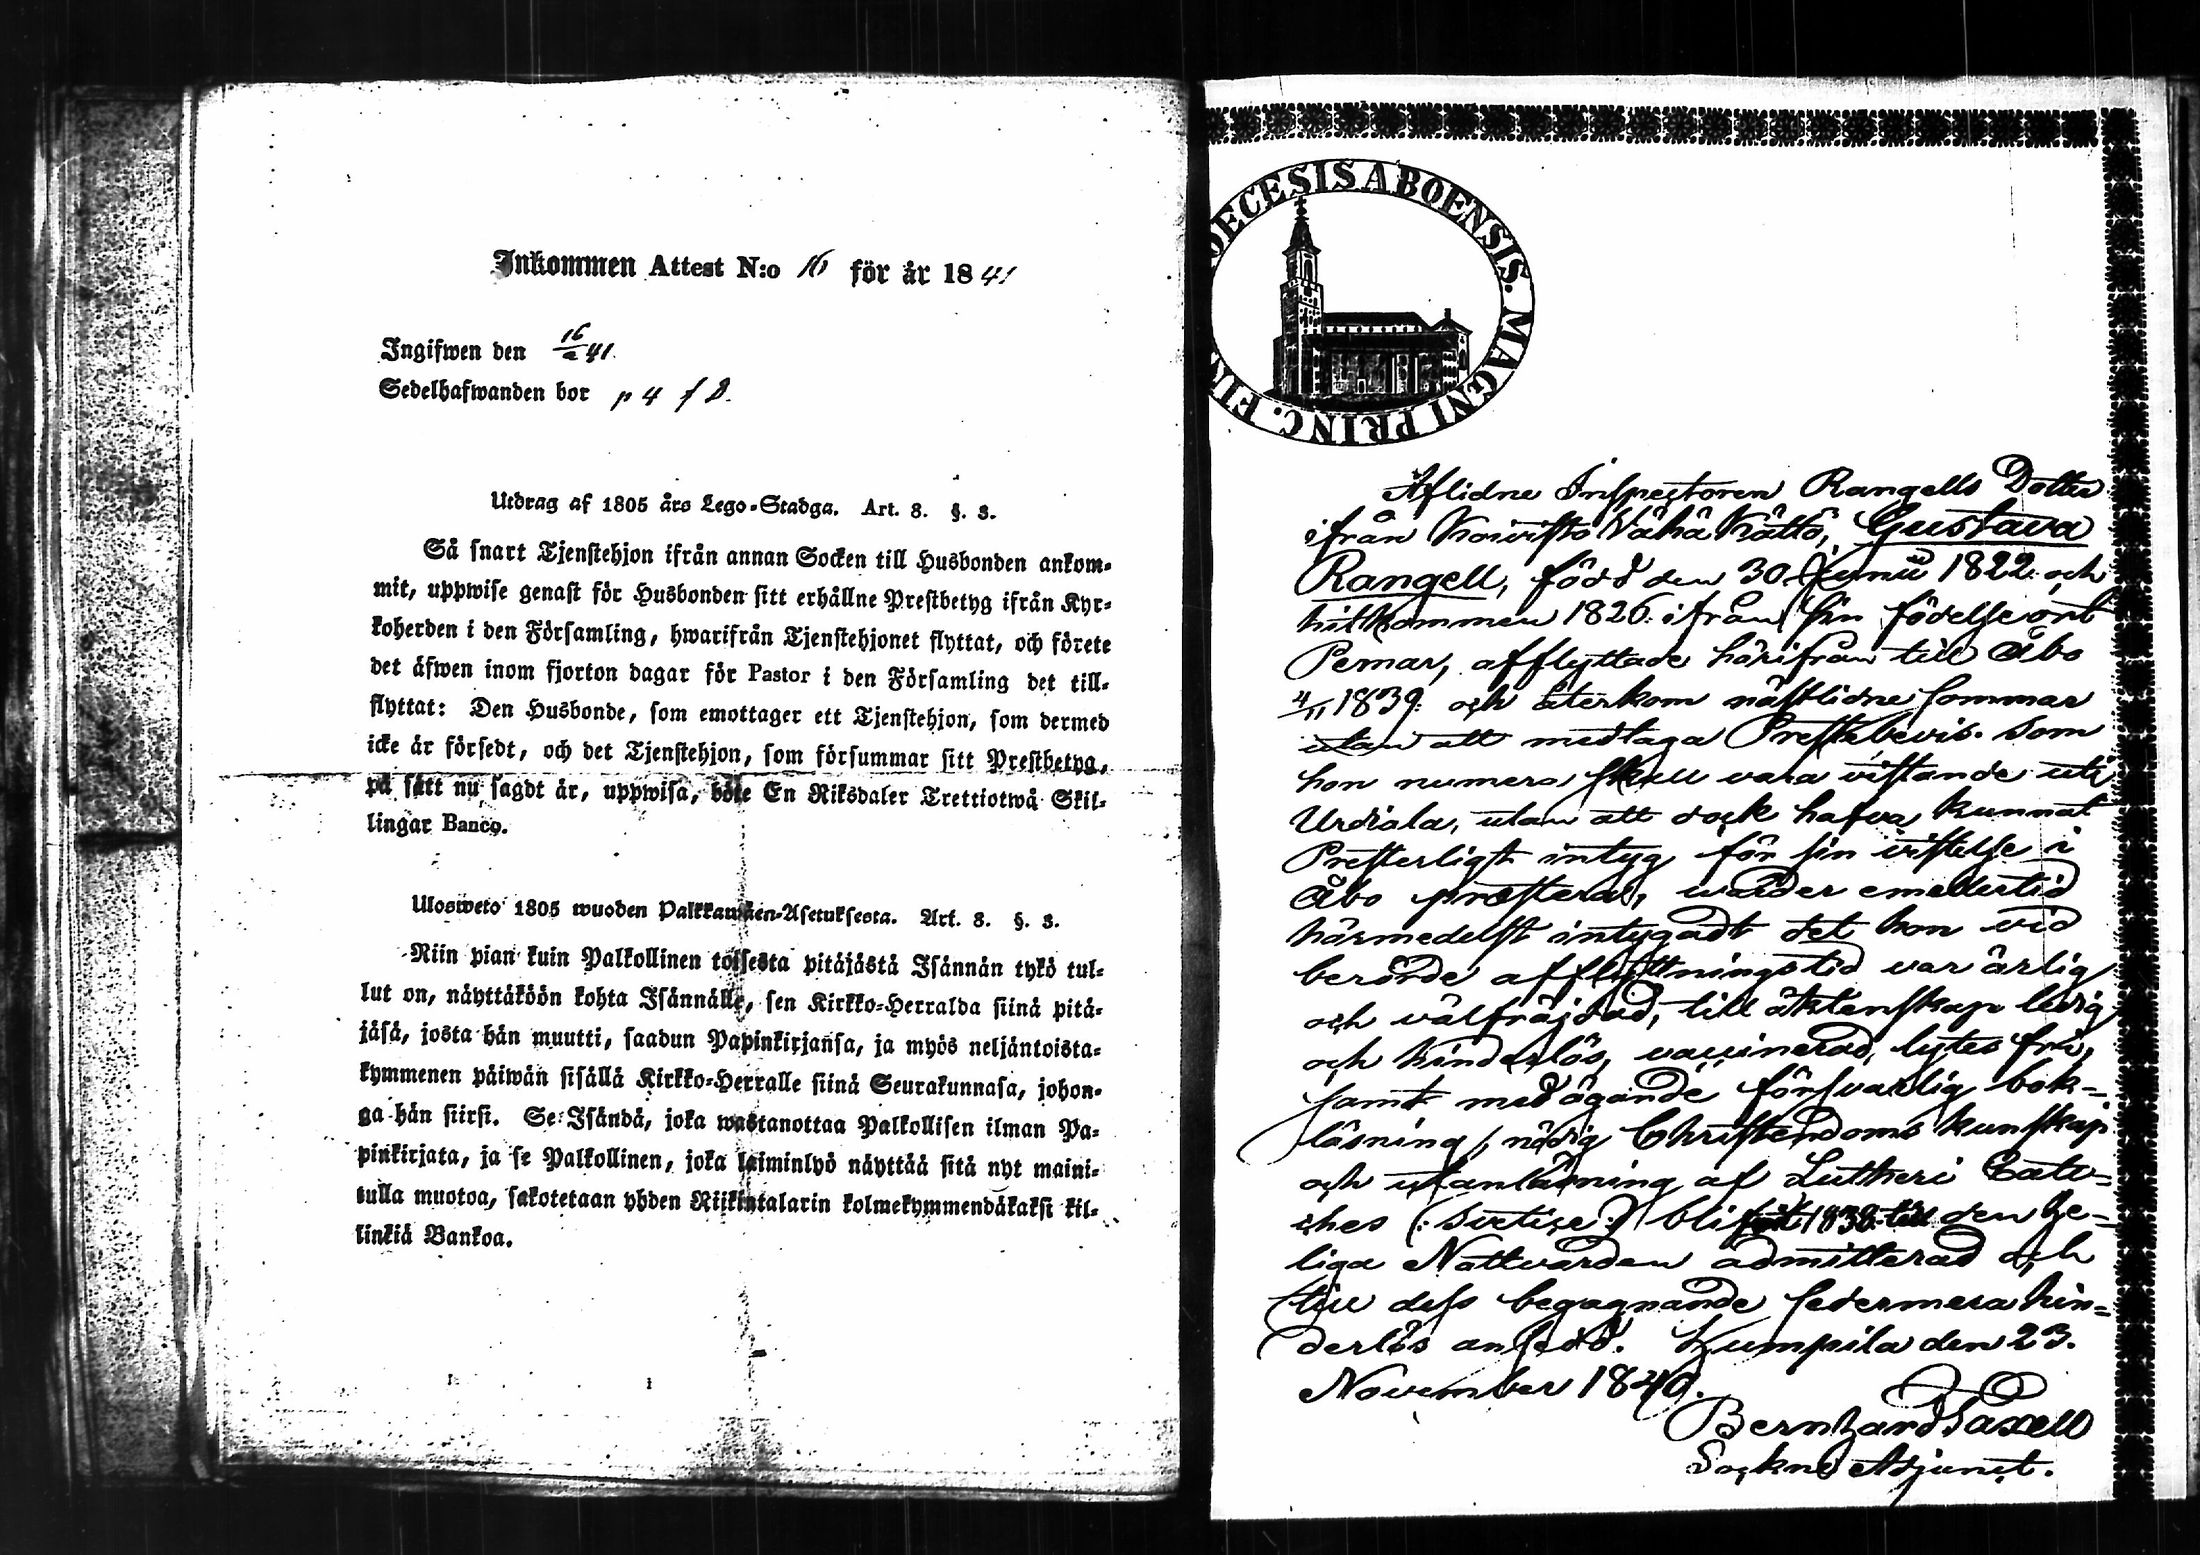 Inkommen Attest N:o 16 för år 1841
Ingifwen den 16/2 41.
Sedelhafwanden bor p 4 f 8.
Utdrag af 1805 års Lego-Stadga. Art. 8. §. 3.
Så snart Tjenstehjon ifrån annan Socken till Husbonden ankom-
mit, uppwise genast för Husbonden sitt erhållne Prestbetyg ifrån Kyr-
koherden i den Församling, hwarifrån Tjenstehjonet flyttat, och förete
det äfwen inom fjorton dagar för Pastor i den Församling det till-
flyttat: Den Husbonde, som emottager ett Tjenstehjon, som dermed
icke är försedt, och det Tjenstehjon, som försummar sitt Prestbetyg,
på sätt nu sagdt är, uppwisa, böte En Riksdaler Trettiotwå Skil-
lingar Banco.
Ulosweto 1805 wuoden Palkkawäen-Asetuksesta. Art. 8. §. 3.
Niin pian kuin Palkollinen toisesta pitäjästä Isännän tykö tul-
lut on, näyttäköön kohta Isännälle, sen Kirkko-Herralda siinä pitä-
jäsä, josta hän muutti, saadun Papinkirjansa, ja myös neljäntoista-
kymmenen päiwän sisällä Kirkko-Herralle siinä Seurakunnasa, johon-
ga hän siirsi. Se Isändä, joka wastanottaa Palkollisen ilman Pa-
pinkirjata, ja se Palkollinen, joka laiminlyö näyttää sitä nyt maini-
tulla muotoa, sakotetaan yhden Riikintalarin kolmekymmendäkaksi kil-
linkiä Bankoa.
DECESIS ABOENSIS. MAGNI PRINC. FIN
Aflidne Inspectoren Rangells Dotter
ifrån Koivisto Vähä Kättö, Gustava
Rangell, född den 30 Junii 1822 och
hitkommen 1826 ifrån sin födelseort
Pemar, afflyttade härifrån till Åbo
4/11 1839 och återkom nästlidne sommar
utan att medtaga Prestebevis. Som
hon numera skall vara vistande uti
Urdiala, utan att dock hafva kunnat
Presterligt intyg för sin vistelse i
Åbo præstera, warder emedlertid
härmedelst intygadt det hon vid
berörde afflyttningstid var ärlig
och välfräjdad, till äktenskap ledig
och hinderlös, vaccinerad, lytes fri,
samt med ägande försvarlig bok-
läsning, nödig Christendoms kunskap
och utanläsning af Lutheri Cate-
ches (: svetice :) blifvit 1838 till den he-
liga Nattvarden admitterad och
till dess begagnande sedermera hin-
derlös ansedd. Kumpila den 23.
November 1840.
Bernhard Taxell
Sockne Adjunct.